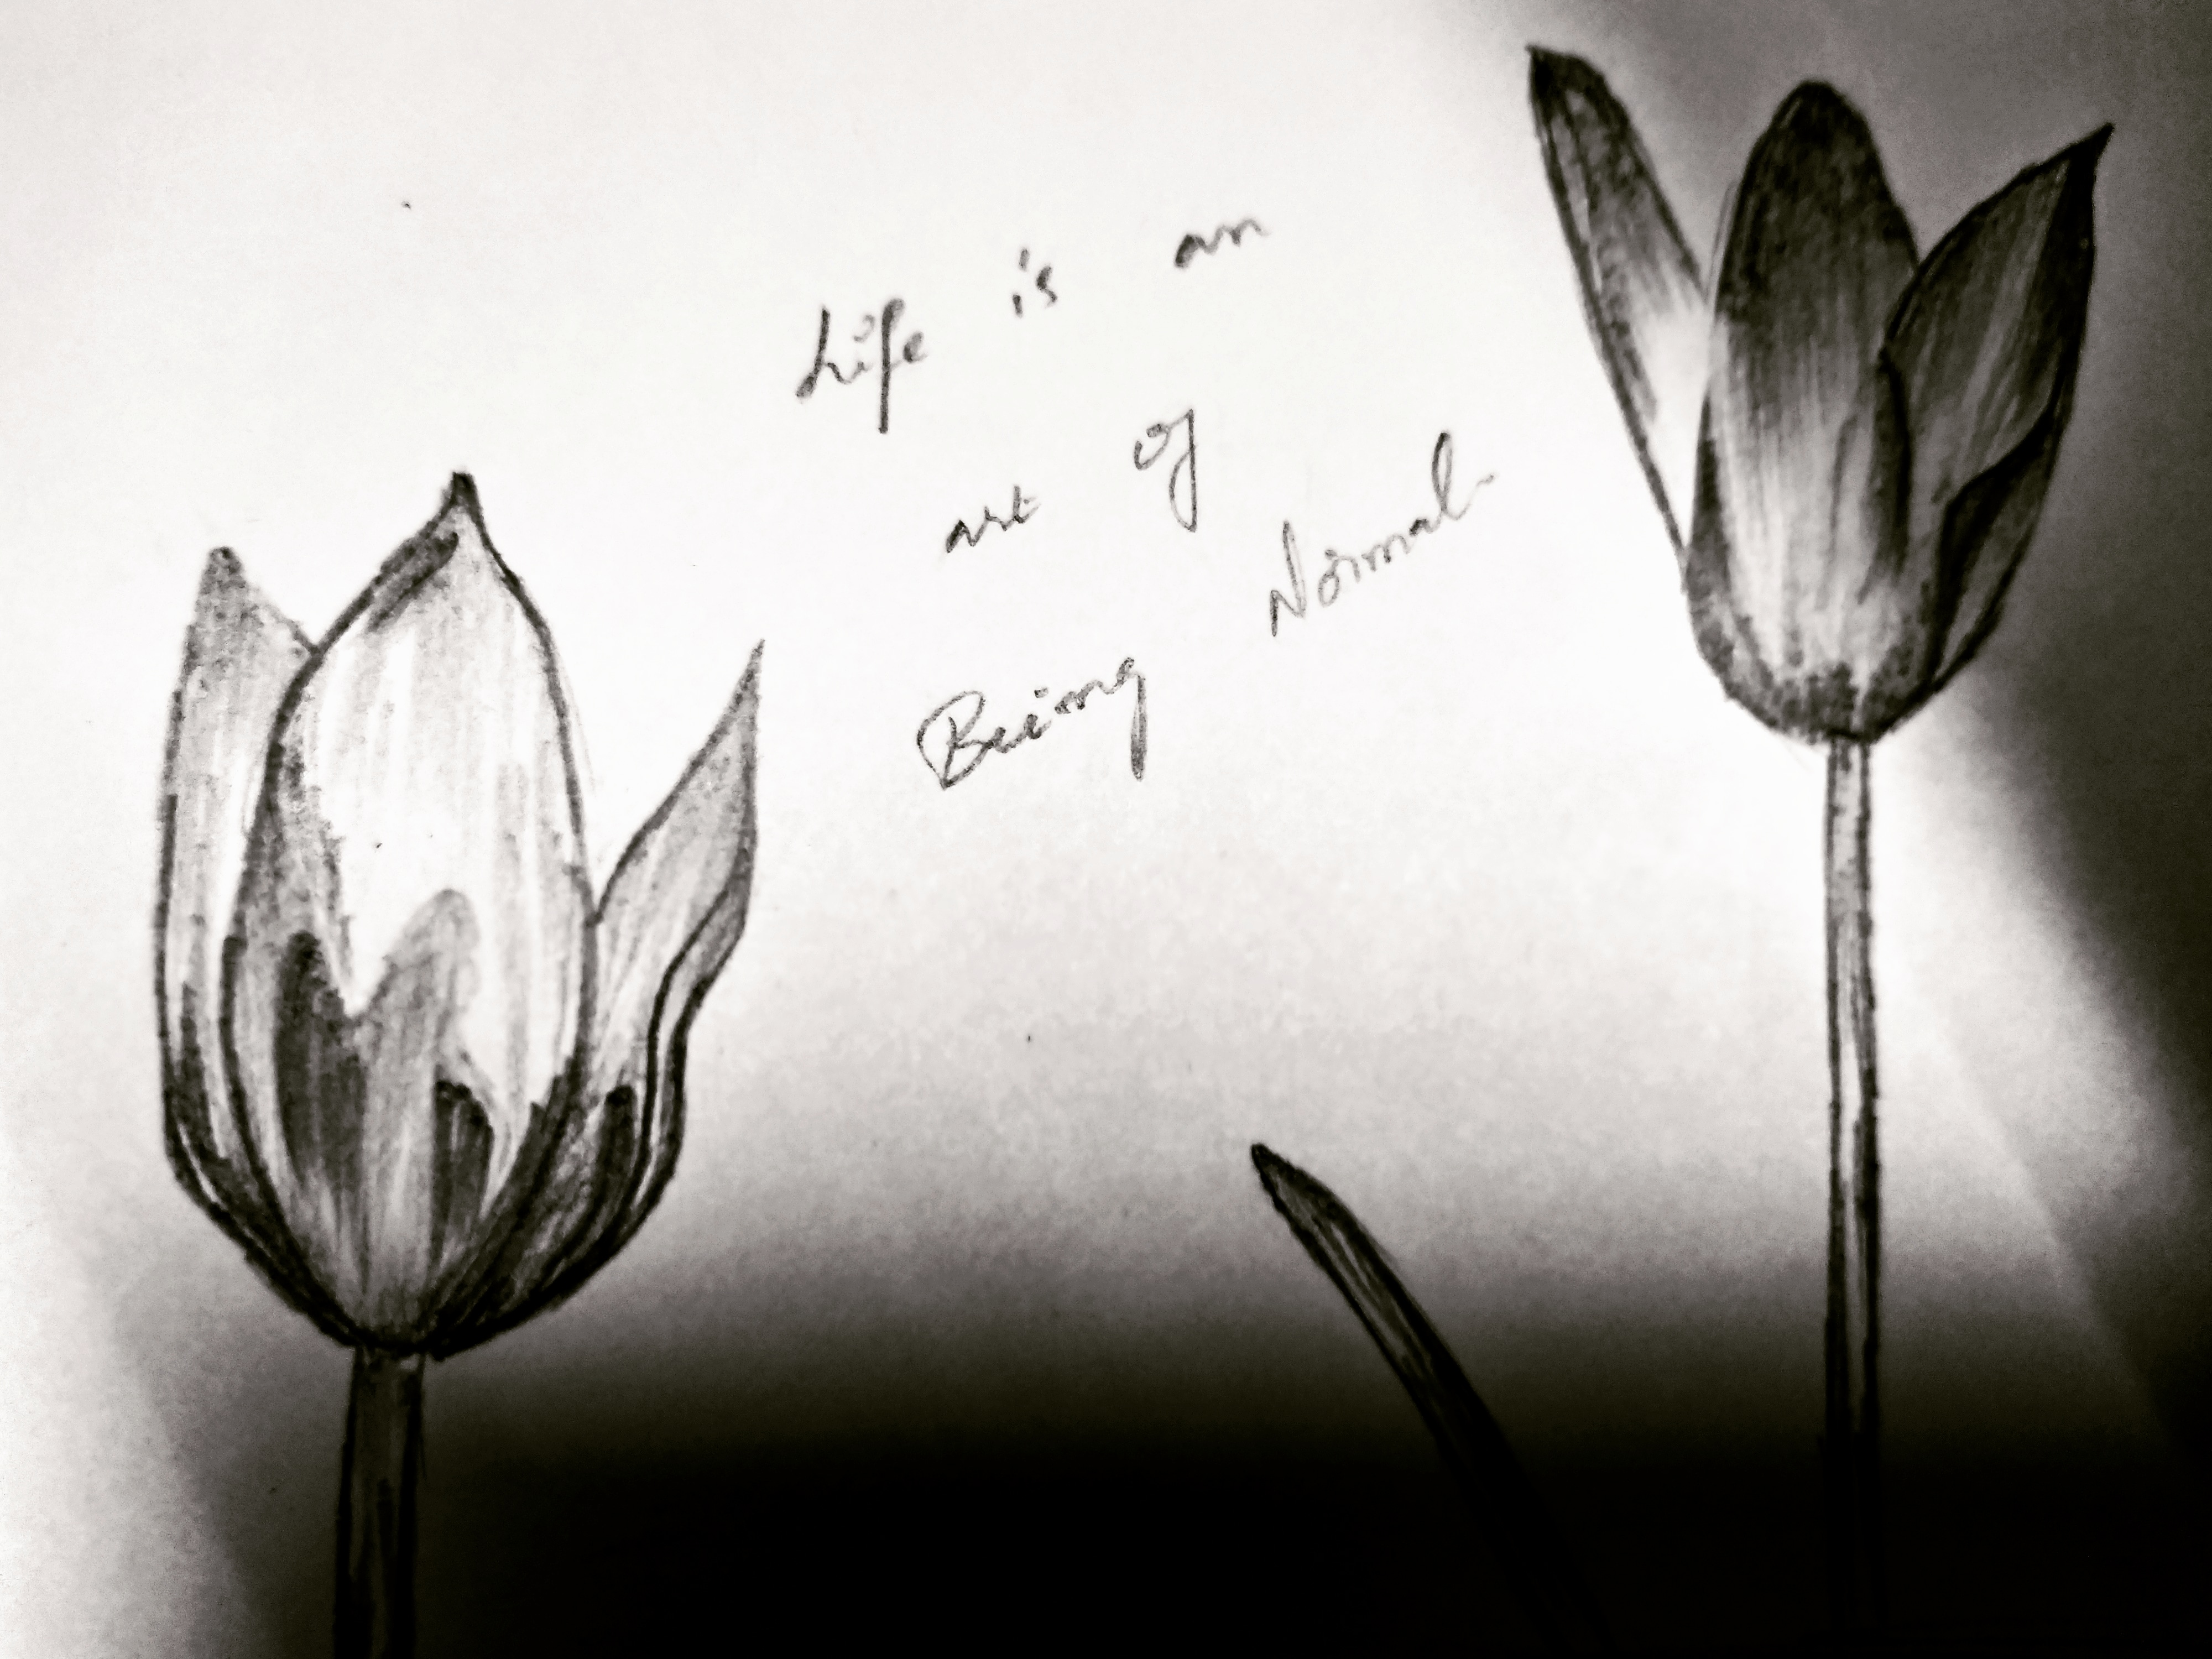 Life is an
art of
Being Normal